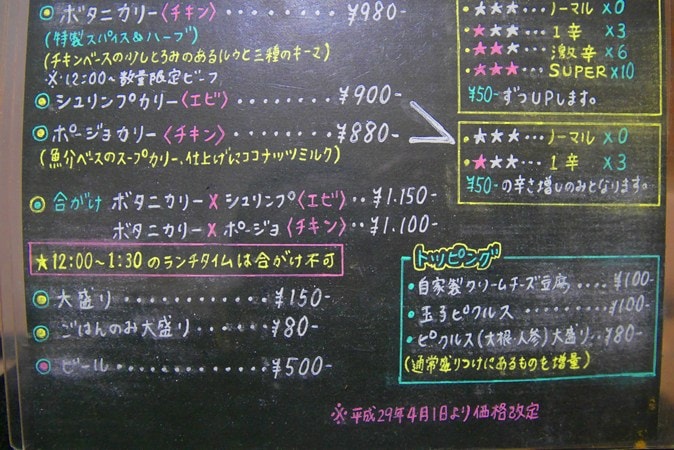 ボタニカリー〈チキン〉........¥980-
(特製スパイス&ハーブ)
(チキンベースの少しとろみのあるルウと三種のキーマ)
※12:00～数量限定ビーフ
シュリンプカリー〈エビ〉........¥900-
ポージョカリー〈チキン〉........¥880-
(魚介ベースのスープカリー、仕上げにココナッツミルク)
合がけ ボタニカリー×シュリンプ〈エビ〉..¥1.150-
ボタニカリー×ポージョ〈チキン〉..¥1.100-
★12:00～1:30のランチタイムは合がけ不可
大盛り..........¥150-
ごはんのみ大盛り......¥80-
ビール..........¥500-
★★★...ノーマル×0
★★★...1辛×3
★★★...激辛×6
★★★...SUPER×10
¥50-ずつUPします。
★★★...ノーマル×0
★★★...1辛×3
¥50-の辛さ増しのみとなります。
トッピング
・自家製クリームチーズ豆腐....¥100-
・玉子ピクルス........¥100-
・ピクルス(大根・人参)大盛り..¥80-
(通常盛りつけにあるものを増量)
※平成29年4月1日より価格改定